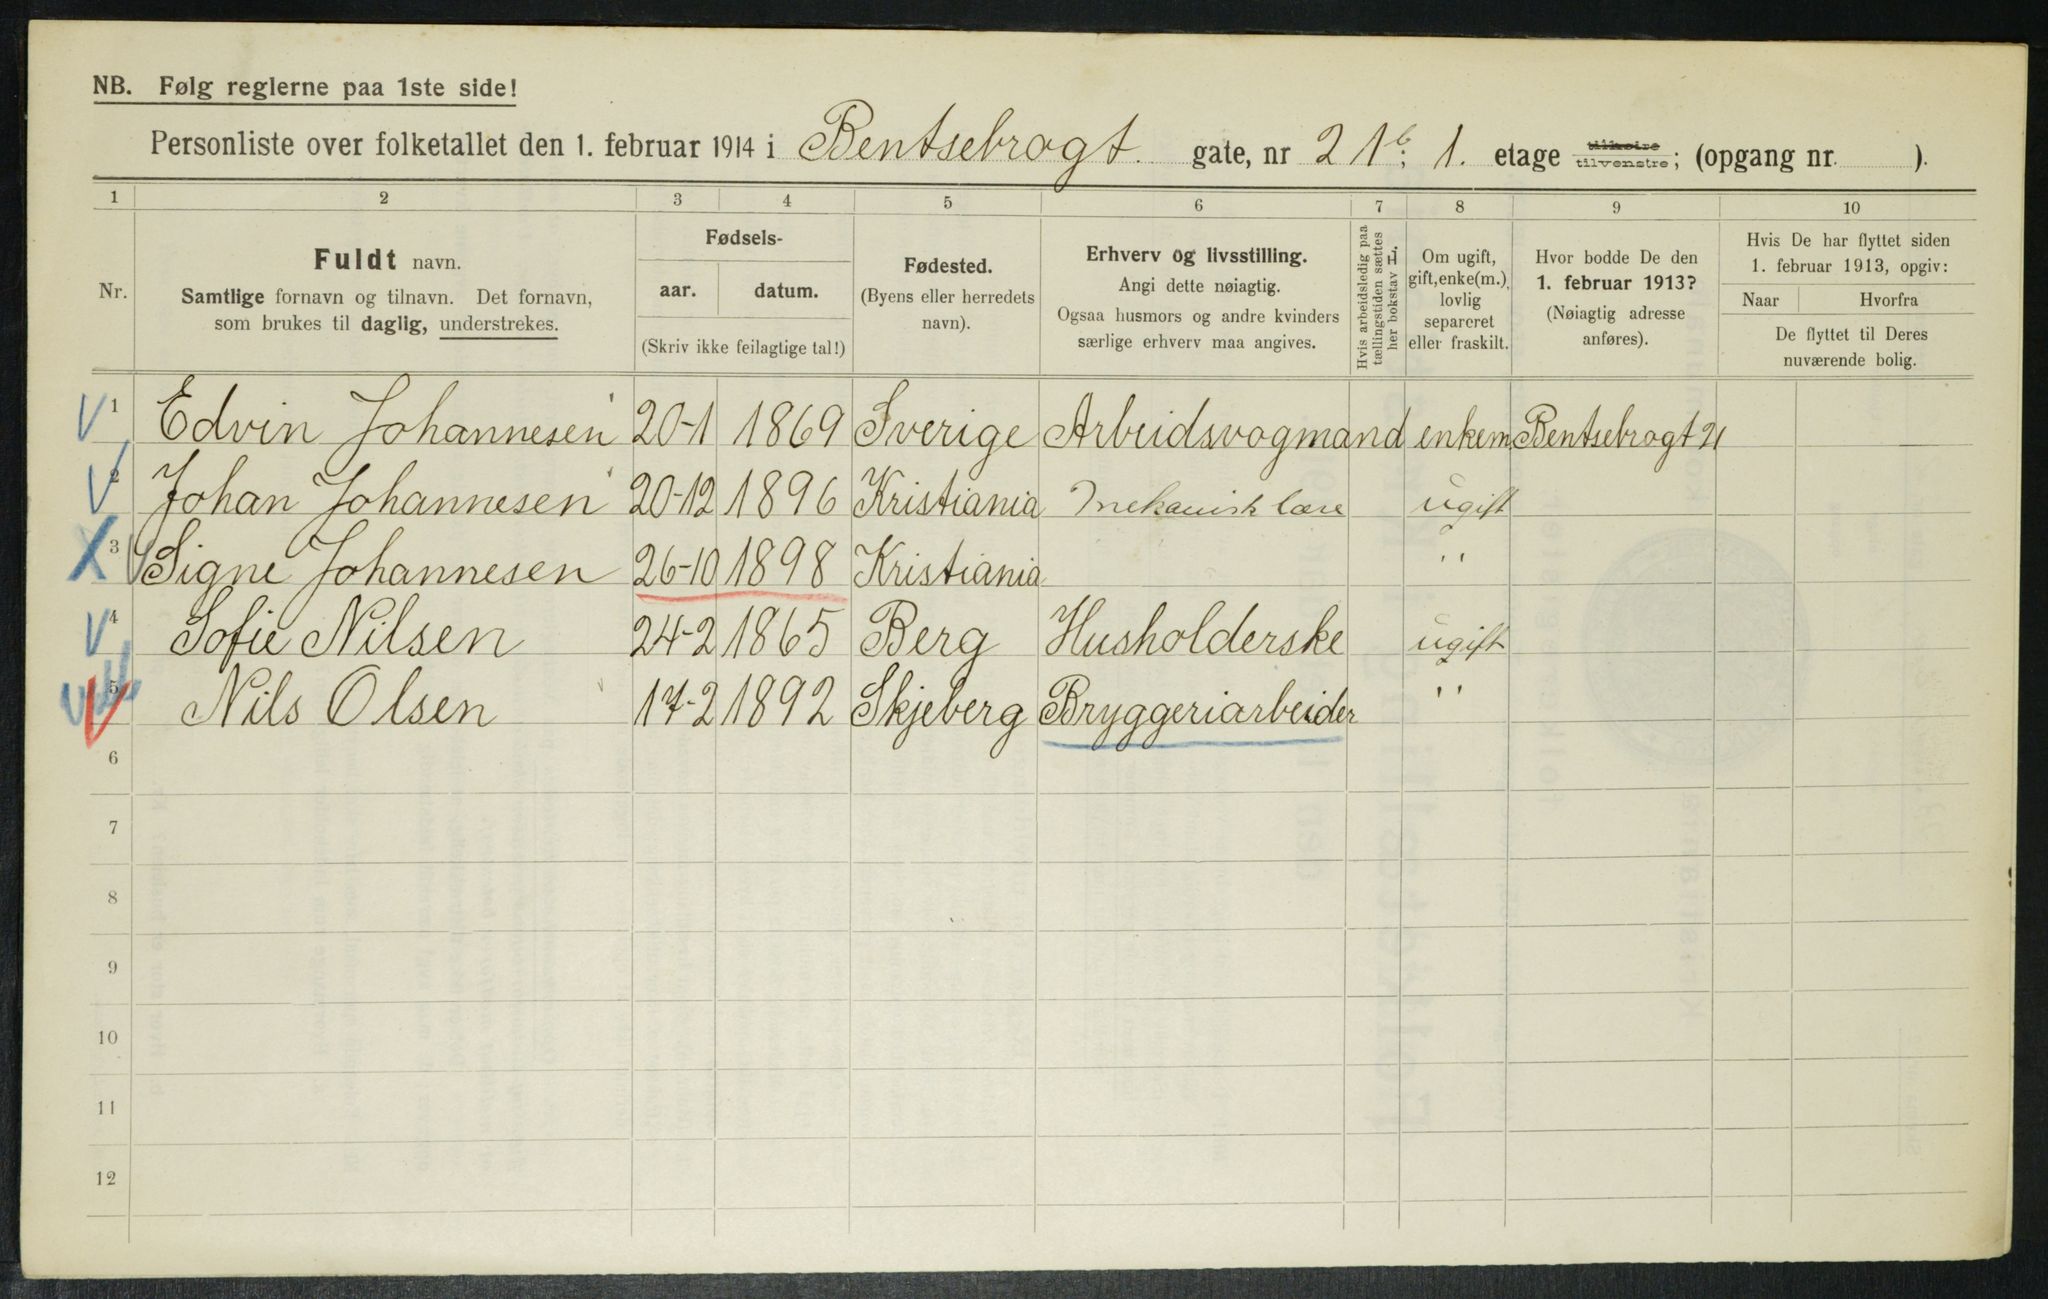 NB. Følg reglerne paa 1ste side!
Personliste over folketallet den 1. februar 1914 i Bentsebrogt. gate, nr 21b; 1. etage tilhøire tilvenstre; (opgang nr. ).
1 2 3 4 5 6 7 8 9 10
Nr.
Fuldt navn.
Samtlige fornavn og tilnavn. Det fornavn,
som brukes til daglig, understrekes.
Fødsels-
aar. datum.
(Skriv ikke feilagtige tal!)
Fødested.
(Byens eller herredets
navn).
Erhverv og livsstilling.
Angi dette nøiagtig.
Ogsaa husmors og andre kvinders
særlige erhverv maa angives.
Hvis arbeidsledig paa
tællingstiden sættes
her bokstav L.
Om ugift,
gift, enke(m.),
lovlig
separeret
eller fraskilt.
Hvor bodde De den
1. februar 1913?
(Nøiagtig adresse
anføres).
Hvis De har flyttet siden
1. februar 1913, opgiv:
Naar Hvorfra
De flyttet til Deres
nuværende bolig.
1 Edvin Johannesen 20-1 1869 Sverige Arbeidsvogmand enkem. Bentsebrogt 21
2 Johan Johannesen 20-12 1896 Kristiania Mekanisk lære ugift
3 Signe Johannesen 26-10 1898 Kristiania "
4 Sofie Nilsen 24-2 1865 Berg Husholderske ugift
5 Nils Olsen 17-2 1892 Skjeberg Bryggeriarbeider "
6
7
8
9
10
11
12